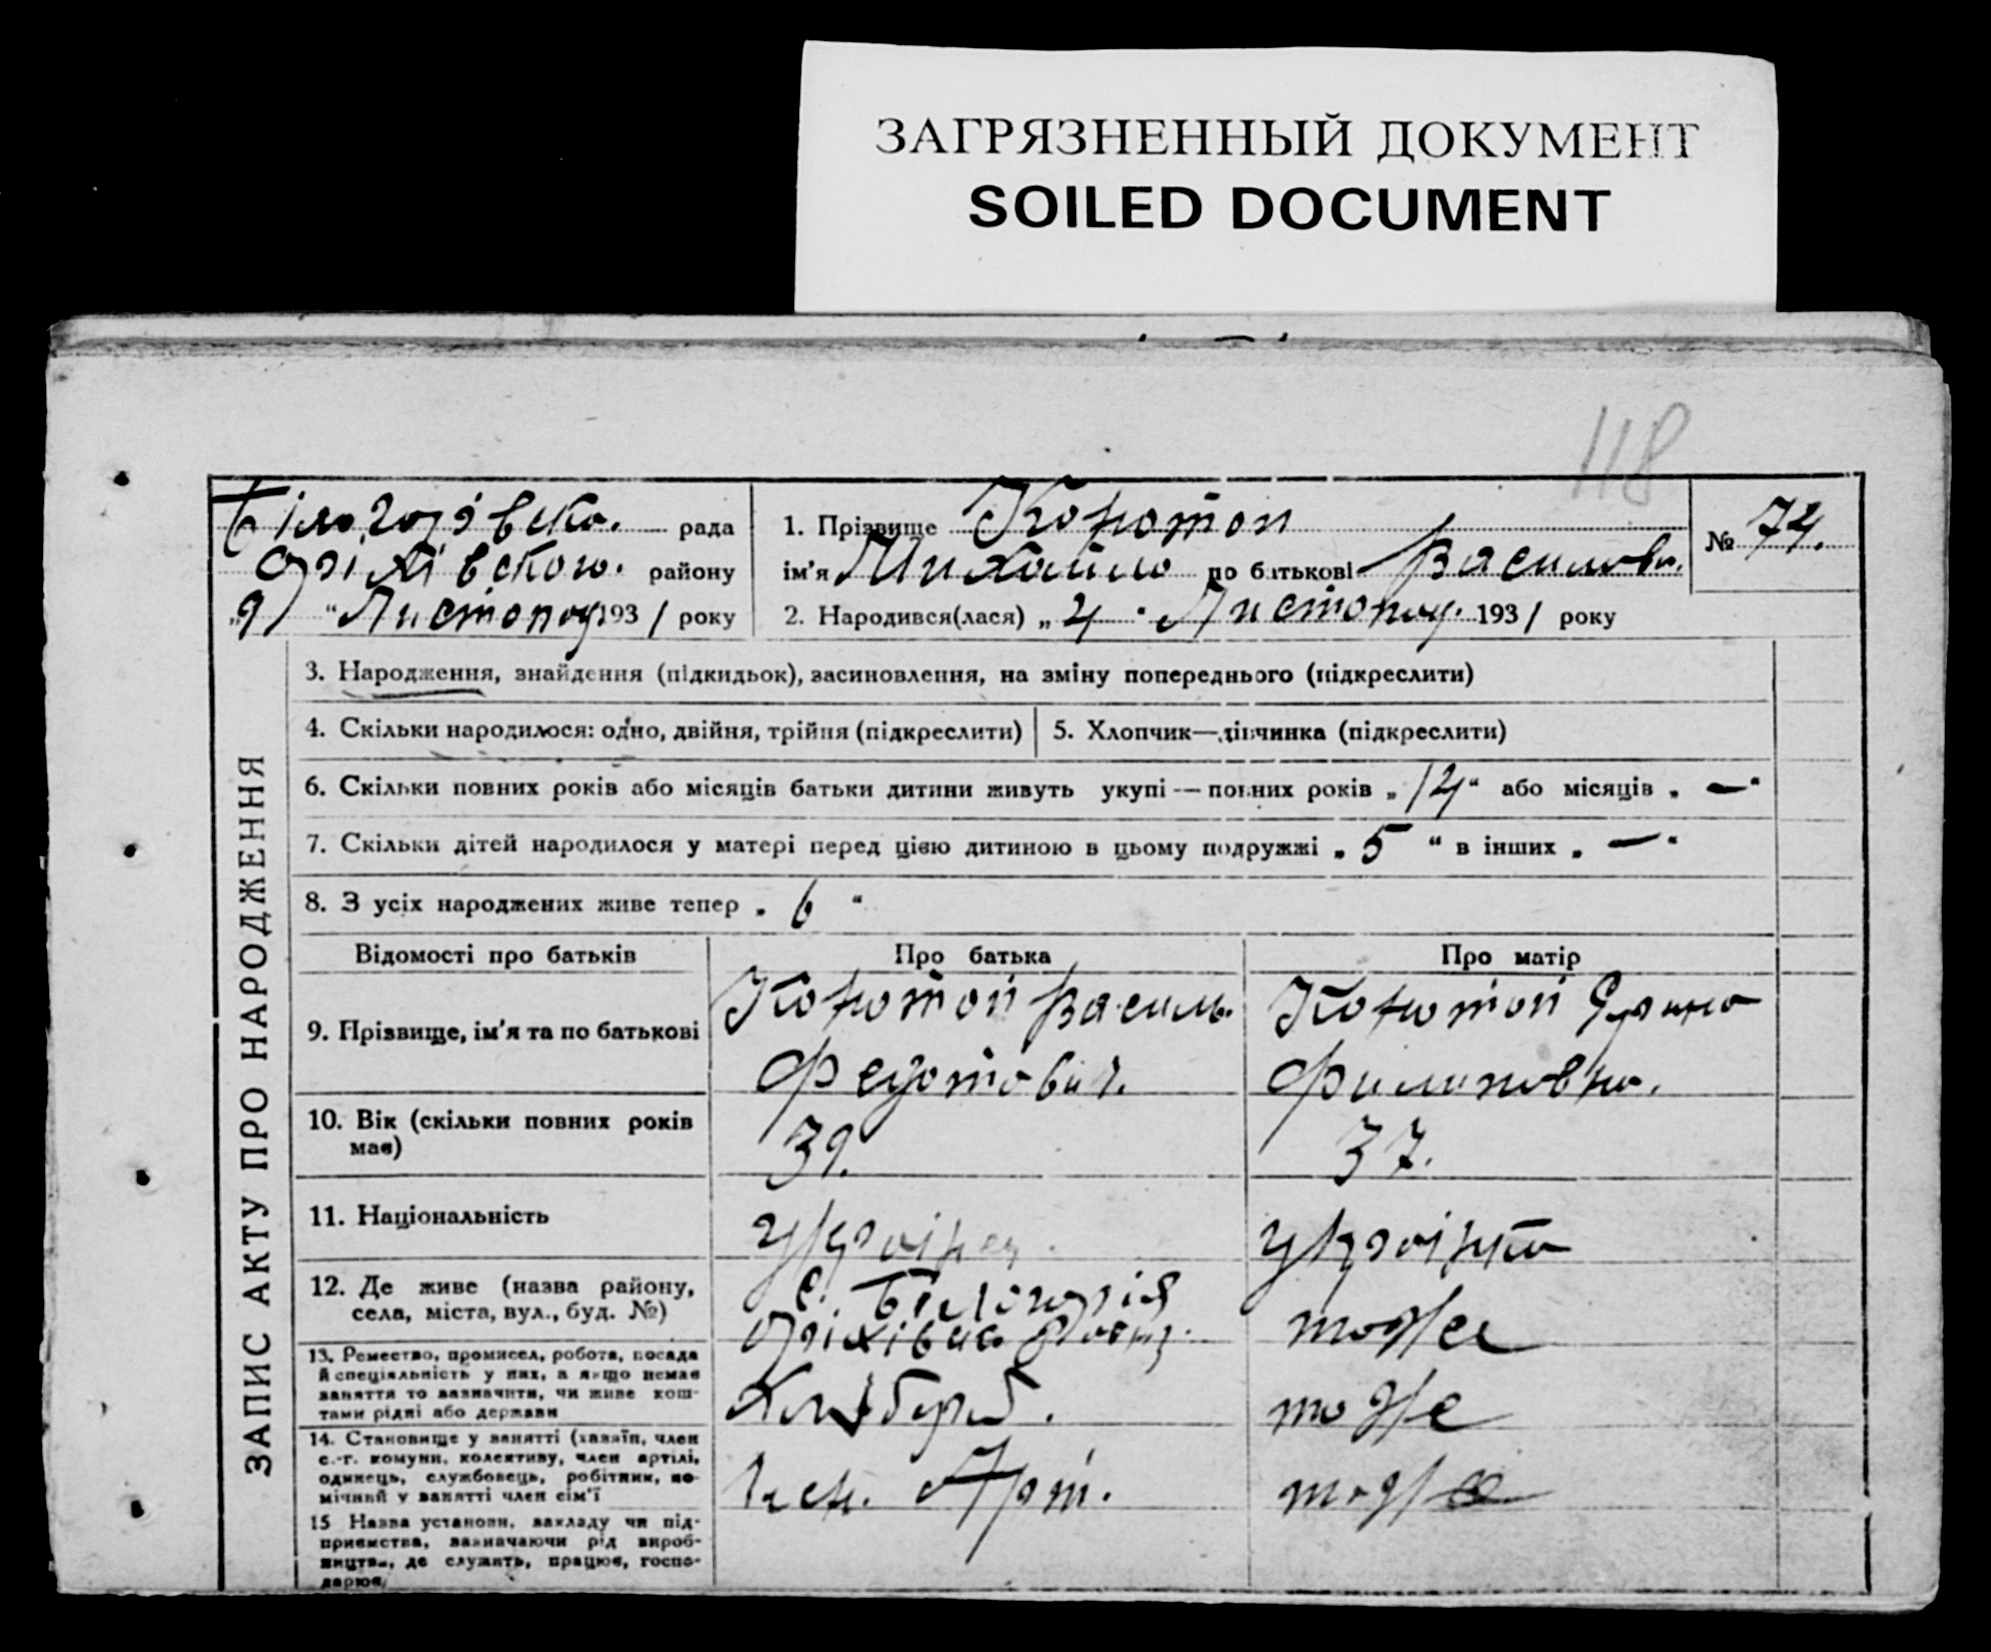 ЗАГРЯЗНЕННЫЙ ДОКУМЕНТ
SOILED DOCUMENT
118
Білогорівська. рада
Оріхівського. району
"9" Листопад 1931 року
1. Прізвище Конотоп
ім'я Михайло по батькові Васильов.
2. Народився(лася) „4" Листопад. 1931 року
№ 74.
ЗАПИС АКТУ ПРО НАРОДЖЕННЯ
3. Народження, знайдення (підкидьок), засиновлення, на зміну попереднього (підкреслити)
4. Скільки народилося: одно, двійня, трійня (підкреслити)
5. Хлопчик—дівчинка (підкреслити)
6. Скільки повних років або місяців батьки дитини живуть укупі — повних років „14" або місяців „—"
7. Скільки дітей народилося у матері перед цією дитиною в цьому подружжі „5" в інших „—"
8. З усіх народжених живе тепер „6"
Відомості про батьків Про батька Про матір
9. Прізвище, ім'я та по батькові
Конотоп Василь
Федотович.
Конотоп
Филиповна.
10. Вік (скільки повних років
має)
39.
37.
11. Національність
українец.
українка
12. Де живе (назва району,
села, міста, вул., буд. №)
с. Білогорія
тоже
13. Ремество, промисел, робота, посада
й спеціяльність у них, а якщо немає
заняття то зазначити, чи живе кош-
тами рідні або держави
Хлібороб.
тоже
14. Становище у занятті (хазяїн, член
с.-г. комуни, колективу, член артілі,
одинець, службовець, робітник, по-
мічний у занятті член сім'ї
Член. Арт.
тоже
15 Назва установи, закладу чи під-
приємства, зазначаючи рід вироб-
ництва, де служить, працює, госпо-
дарює